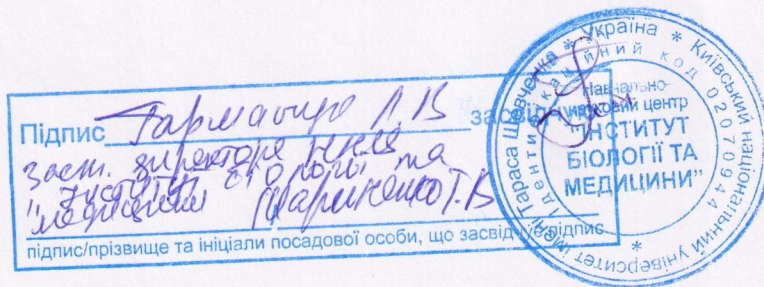 Підпис Гармашура Л.В засвідчую
Заст. директора ННЦ
"Інститут біології та
медицини" Мариненко Т.В
підпис/прізвище та ініціали посадової особи, що засвідчує підпис
Київський національний університет імені Тараса Шевченка * Україна *
Ідентифікаційний код 02070944
Навчально-
науковий центр
"ІНСТИТУТ
БІОЛОГІЇ ТА
МЕДИЦИНИ"